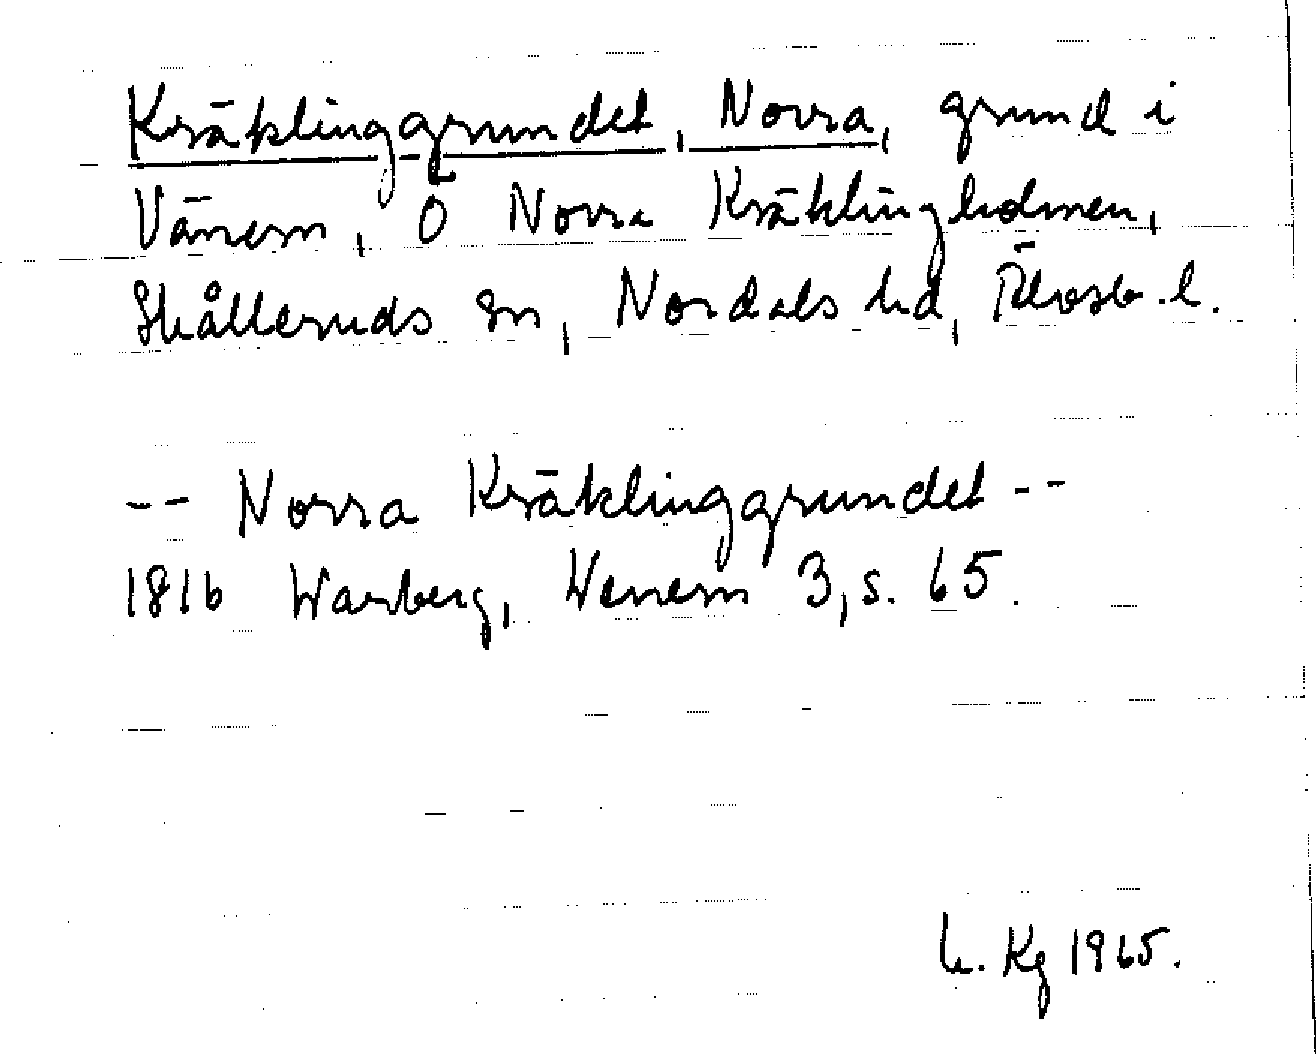 Kräklinggrundet, Norra, grund i
Vänern, Ö Norra Kräklingholmen,
Skålleruds sn, Nordals hd, Älvsb. l.
-- Norra Kräklinggrundet --
1816 Warberg, Wenern 3, s. 65.
Kg 1965.